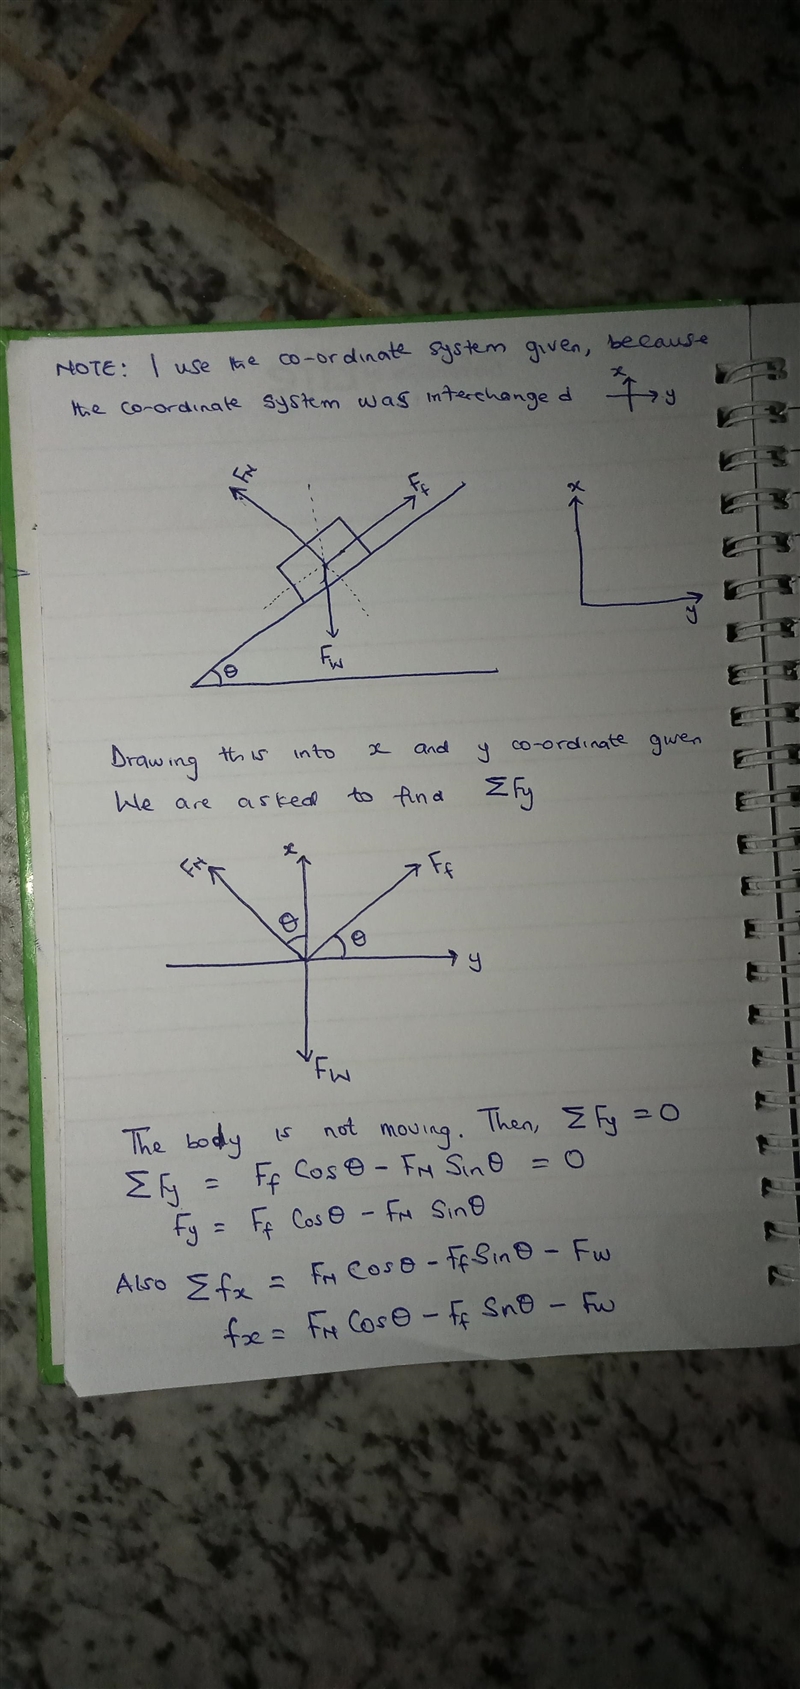 NOTE: I use the co-ordinate system given, because
the co-ordinate system was interchanged x y
FN
Ff
x
FW
θ
y
Drawing this into x and y co-ordinate given
We are asked to find ΣFy
FN
x
Ff
θ
θ
y
FW
The body is not moving. Then, ΣFy = 0
ΣFy = Ff Cosθ - FN Sinθ = 0
Fy = Ff Cosθ - FN Sinθ
Also Σfx = FN Cosθ - Ff Sinθ - FW
fx = FN Cosθ - Ff Snθ - FW